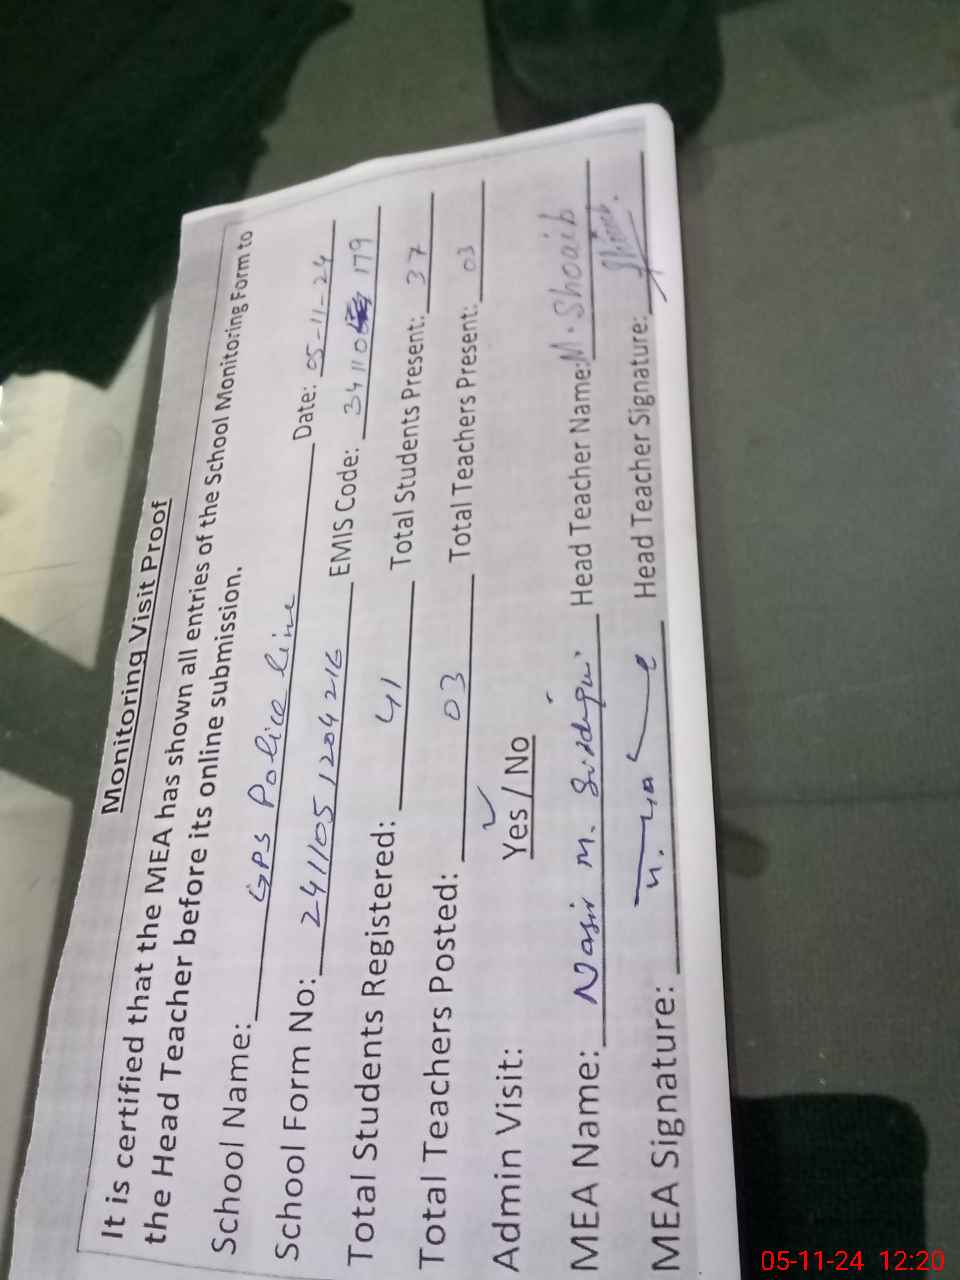 Monitoring Visit Proof
It is certified that the MEA has shown all entries of the School Monitoring Form to
the Head Teacher before its online submission.
School Name: GPS Police Line Date: 05-11-24
School Form No: 241105 1204 216 EMIS Code: 34110 179
Total Students Registered: 41 Total Students Present: 37
Total Teachers Posted: 03 Total Teachers Present: 03
Admin Visit: Yes / No
MEA Name: Nasir M. Head Teacher Name: M. Shoaib
MEA Signature: Head Teacher Signature: Shoaib.
05-11-24 12:20